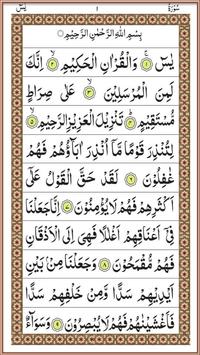 يٰسٓ ١ سُوْرَةُ
بِسْمِ اللهِ الرَّحْمٰنِ الرَّحِيْمِ
يٰسٓ ۝١ وَالْقُرْاٰنِ الْحَكِيْمِ ۝٢ اِنَّكَ
لَمِنَ الْمُرْسَلِيْنَ ۝٣ عَلٰى صِرَاطٍ
مُّسْتَقِيْمٍ ۝٤ تَنْزِيْلَ الْعَزِيْزِ الرَّحِيْمِ ۝٥
لِتُنْذِرَ قَوْمًا مَّاۤ اُنْذِرَ اٰبَآؤُهُمْ فَهُمْ
غٰفِلُوْنَ ۝٦ لَقَدْ حَقَّ الْقَوْلُ عَلٰۤى
اَكْثَرِهِمْ فَهُمْ لَا يُؤْمِنُوْنَ ۝٧ اِنَّا جَعَلْنَا
فِيْۤ اَعْنَاقِهِمْ اَغْلٰلًا فَهِىَ اِلَى الْاَذْقَانِ
فَهُمْ مُّقْمَحُوْنَ ۝٨ وَجَعَلْنَا مِنْۢ بَيْنِ
اَيْدِيْهِمْ سَدًّا وَّمِنْ خَلْفِهِمْ سَدًّا
فَاَغْشَيْنٰهُمْ فَهُمْ لَا يُبْصِرُوْنَ ۝٩ وَسَوَآءٌ